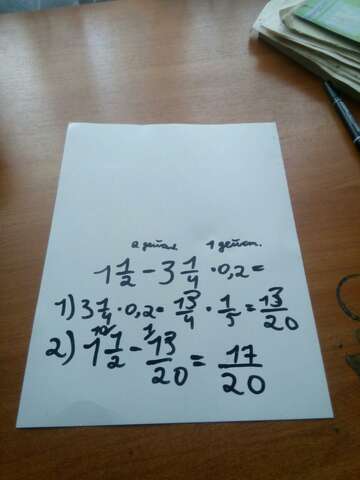 2 дейст. 1 дейст.
1 1/2 - 3 1/4 · 0,2 =
1) 3 1/4 · 0,2 = 13/4 · 1/5 = 13/20
2) 1 1/2 (10/ - 13/20 (1/ = 17/20